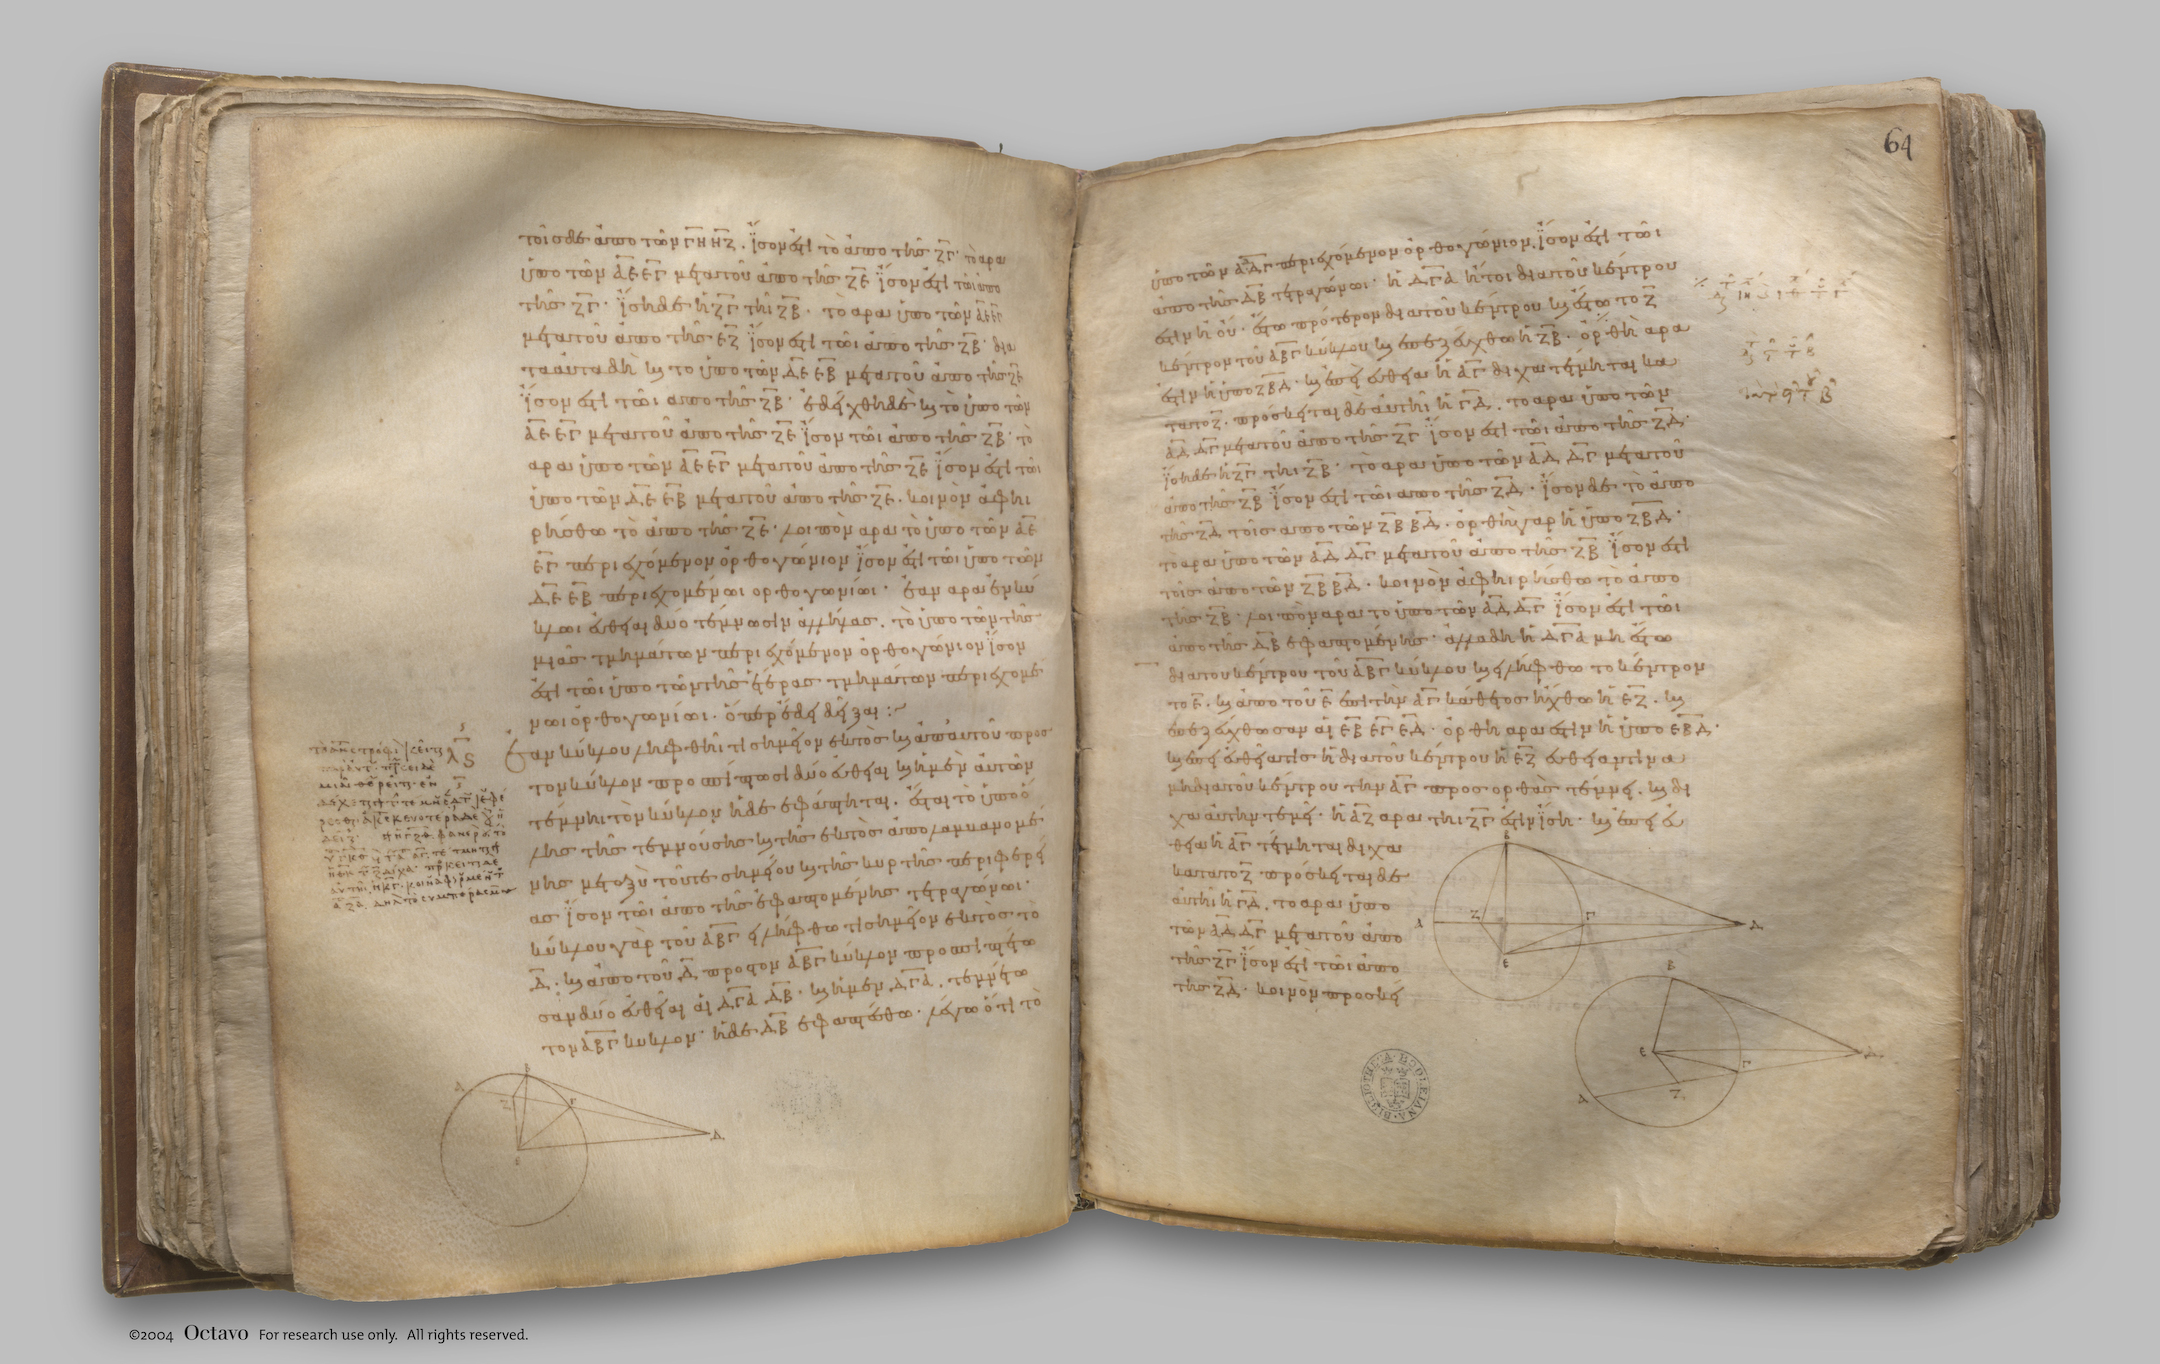 τοῖς δὲ ἀπὸ τῶν ΓΗ ΗΖ. ἴσον ἐστὶ τὸ ἀπὸ τῆς ΖΓ· τὸ ἄρα
ὑπὸ τῶν ΑΕ ΕΓ μετὰ τοῦ ἀπὸ τῆς ΖΕ ἴσον ἐστὶ τῶι ἀπὸ
τῆς ΖΓ· ἴση δὲ ἡ ΖΓ τῆι ΖΒ· τὸ ἄρα ὑπὸ τῶν ΑΕ ΕΓ
μετὰ τοῦ ἀπὸ τῆς ΕΖ ἴσον ἐστὶ τῶι ἀπὸ τῆς ΖΒ· δια
τὰ αὐτὰ δὴ καὶ τὸ ὑπὸ τῶν ΔΕ ΕΒ μετὰ τοῦ ἀπὸ τῆς ΖΕ
ἴσον ἐστὶ τῶι ἀπὸ τῆς ΖΒ· ἐδείχθη δὲ καὶ τὸ ὑπὸ τῶν
ΑΕ ΕΓ μετὰ τοῦ ἀπὸ τῆς ΖΕ ἴσον τῶι ἀπὸ τῆς ΖΒ· τὸ
ἄρα ὑπὸ τῶν ΑΕ ΕΓ μετὰ τοῦ ἀπὸ τῆς ΖΕ ἴσον ἐστὶ τῶι
ὑπὸ τῶν ΔΕ ΕΒ μετὰ τοῦ ἀπὸ τῆς ΖΕ. κοινὸν ἀφηι
ρήσθω τὸ ἀπὸ τῆς ΖΕ· λοιπὸν ἄρα τὸ ὑπὸ τῶν ΑΕ
ΕΓ περιεχόμενον ὀρθογώνιον ἴσον ἐστὶ τῶι ὑπὸ τῶν
ΔΕ ΕΒ περιεχομένωι ὀρθογωνίωι· ἐὰν ἄρα ἐν κύ
κλωι εὐθεῖαι δύο τέμνωσιν ἀλλήλας. τὸ ὑπὸ τῶν τῆς
μιᾶς τμημάτων περιεχόμενον ὀρθογώνιον ἴσον
ἐστὶ τῶι ὑπὸ τῶν τῆς ἑτέρας τμημάτων περιεχομέ
νωι ὀρθογωνίωι· ὅπερ ἔδει δεῖξαι :~
λς
Ἐὰν κύκλου ληφθῆι τι σημεῖον ἐκτὸς καὶ ἀπ' αὐτοῦ προς
τὸν κύκλον προσπίπτωσι δύο εὐθεῖαι καὶ ἡ μὲν αὐτῶν
τέμνηι τὸν κύκλον ἡ δὲ ἐφάπτηται. ἔσται τὸ ὑπὸ ὅ
λης τῆς τεμνούσης καὶ τῆς ἐκτὸς ἀπολαμβανομέ
νης μεταξὺ τοῦ τε σημείου καὶ τῆς κυρτῆς περιφερεί
ας ἴσον τῶι ἀπὸ τῆς ἐφαπτομένης τετραγώνωι·
κύκλου γὰρ τοῦ ΑΒΓ εἰλήφθω τι σημεῖον ἐκτὸς τὸ
Δ· καὶ ἀπὸ τοῦ Δ πρὸς τὸν ΑΒΓ κύκλον προσπιπτέτω
σαν δύο εὐθεῖαι αἱ ΔΓΑ ΔΒ· καὶ ἡ μὲν ΔΓΑ. τεμνέτω
τὸν ΑΒΓ κύκλον· ἡ δὲ ΔΒ ἐφαπτέσθω· λέγω ὅτι τὸ
Α Β Γ Ζ Ε Δ
64
ὑπὸ τῶν ΑΔ ΔΓ περιεχόμενον ὀρθογώνιον ἴσον ἐστὶ τῶι
ἀπὸ τῆς ΔΒ τετραγώνωι· ἡ ΔΓΑ ἤτοι διὰ τοῦ κέντρου
ἐστὶν ἢ οὔ· ἔστω πρότερον διὰ τοῦ κέντρου καὶ ἔστω τὸ Ζ
κέντρον τοῦ ΑΒΓ κύκλου καὶ ἐπεζεύχθω ἡ ΖΒ· ὀρθὴ ἄρα
ἐστὶν ἡ ὑπὸ ΖΒΔ· καὶ ἐπεὶ εὐθεῖα ἡ ΑΓ δίχα τέτμηται κα
τὰ τὸ Ζ. πρόσκειται δὲ αὐτῆι ἡ ΓΔ. τὸ ἄρα ὑπὸ τῶν
ΑΔ ΔΓ μετὰ τοῦ ἀπὸ τῆς ΖΓ ἴσον ἐστὶ τῶι ἀπὸ τῆς ΖΔ·
ἴση δὲ ἡ ΖΓ τῆι ΖΒ· τὸ ἄρα ὑπὸ τῶν ΑΔ ΔΓ μετὰ τοῦ
ἀπὸ τῆς ΖΒ ἴσον ἐστὶ τῶι ἀπὸ τῆς ΖΔ· ἴσον δὲ τὸ ἀπὸ
τῆς ΖΔ τοῖς ἀπὸ τῶν ΖΒ ΒΔ. ὀρθὴ γὰρ ἡ ὑπὸ ΖΒΔ·
τὸ ἄρα ὑπὸ τῶν ΑΔ ΔΓ μετὰ τοῦ ἀπὸ τῆς ΖΒ ἴσον ἐστὶ
τοῖς ἀπὸ τῶν ΖΒ ΒΔ. κοινὸν ἀφηιρήσθω τὸ ἀπὸ
τῆς ΖΒ· λοιπὸν ἄρα τὸ ὑπὸ τῶν ΑΔ ΔΓ ἴσον ἐστὶ τῶι
ἀπὸ τῆς ΔΒ ἐφαπτομένης· ἀλλὰ δὴ ἡ ΔΓΑ μὴ ἔστω
διὰ τοῦ κέντρου τοῦ ΑΒΓ κύκλου καὶ εἰλήφθω τὸ κέντρον
τὸ Ε. καὶ ἀπὸ τοῦ Ε ἐπὶ τὴν ΑΓ κάθετος ἤχθω ἡ ΕΖ. καὶ
ἐπεζεύχθωσαν αἱ ΕΒ ΕΓ ΕΔ· ὀρθὴ ἄρα ἐστὶν ἡ ὑπὸ ΕΒΔ·
καὶ ἐπεὶ εὐθεῖά τις ἡ διὰ τοῦ κέντρου ἡ ΕΖ εὐθεῖαν τινα
μὴ διὰ τοῦ κέντρου τὴν ΑΓ πρὸς ὀρθὰς τέμνει. καὶ δί
χα αὐτὴν τεμεῖ· ἡ ΑΖ ἄρα τῆι ΖΓ ἐστὶν ἴση· καὶ ἐπεὶ εὐ
θεῖα ἡ ΑΓ τέτμηται δίχα
κατὰ τὸ Ζ πρόσκειται δὲ
αὐτῆι ἡ ΓΔ. τὸ ἄρα ὑπὸ
τῶν ΑΔ ΔΓ μετὰ τοῦ ἀπὸ
τῆς ΖΓ ἴσον ἐστὶ τῶι ἀπὸ
τῆς ΖΔ· κοινὸν προσκεί
Β Α Ζ Γ Δ Ε
Β Ε Γ Δ Α Ζ
BIBLIOTHECA BODLEIANA
©2004 Octavo For research use only. All rights reserved.